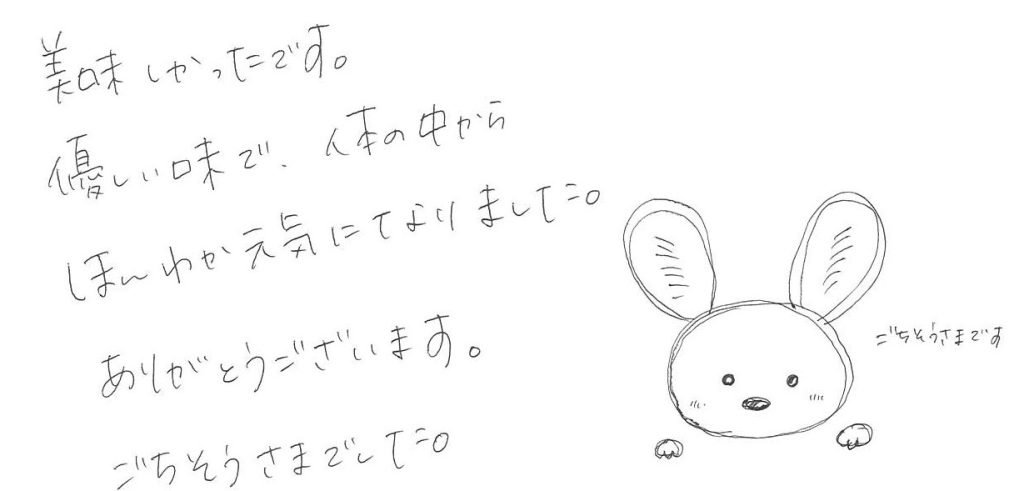 美味しかったです。
優しい味で、体の中から
ほんわか元気になりました。
ありがとうございます。
ごちそうさまでした。
ごちそうさまです